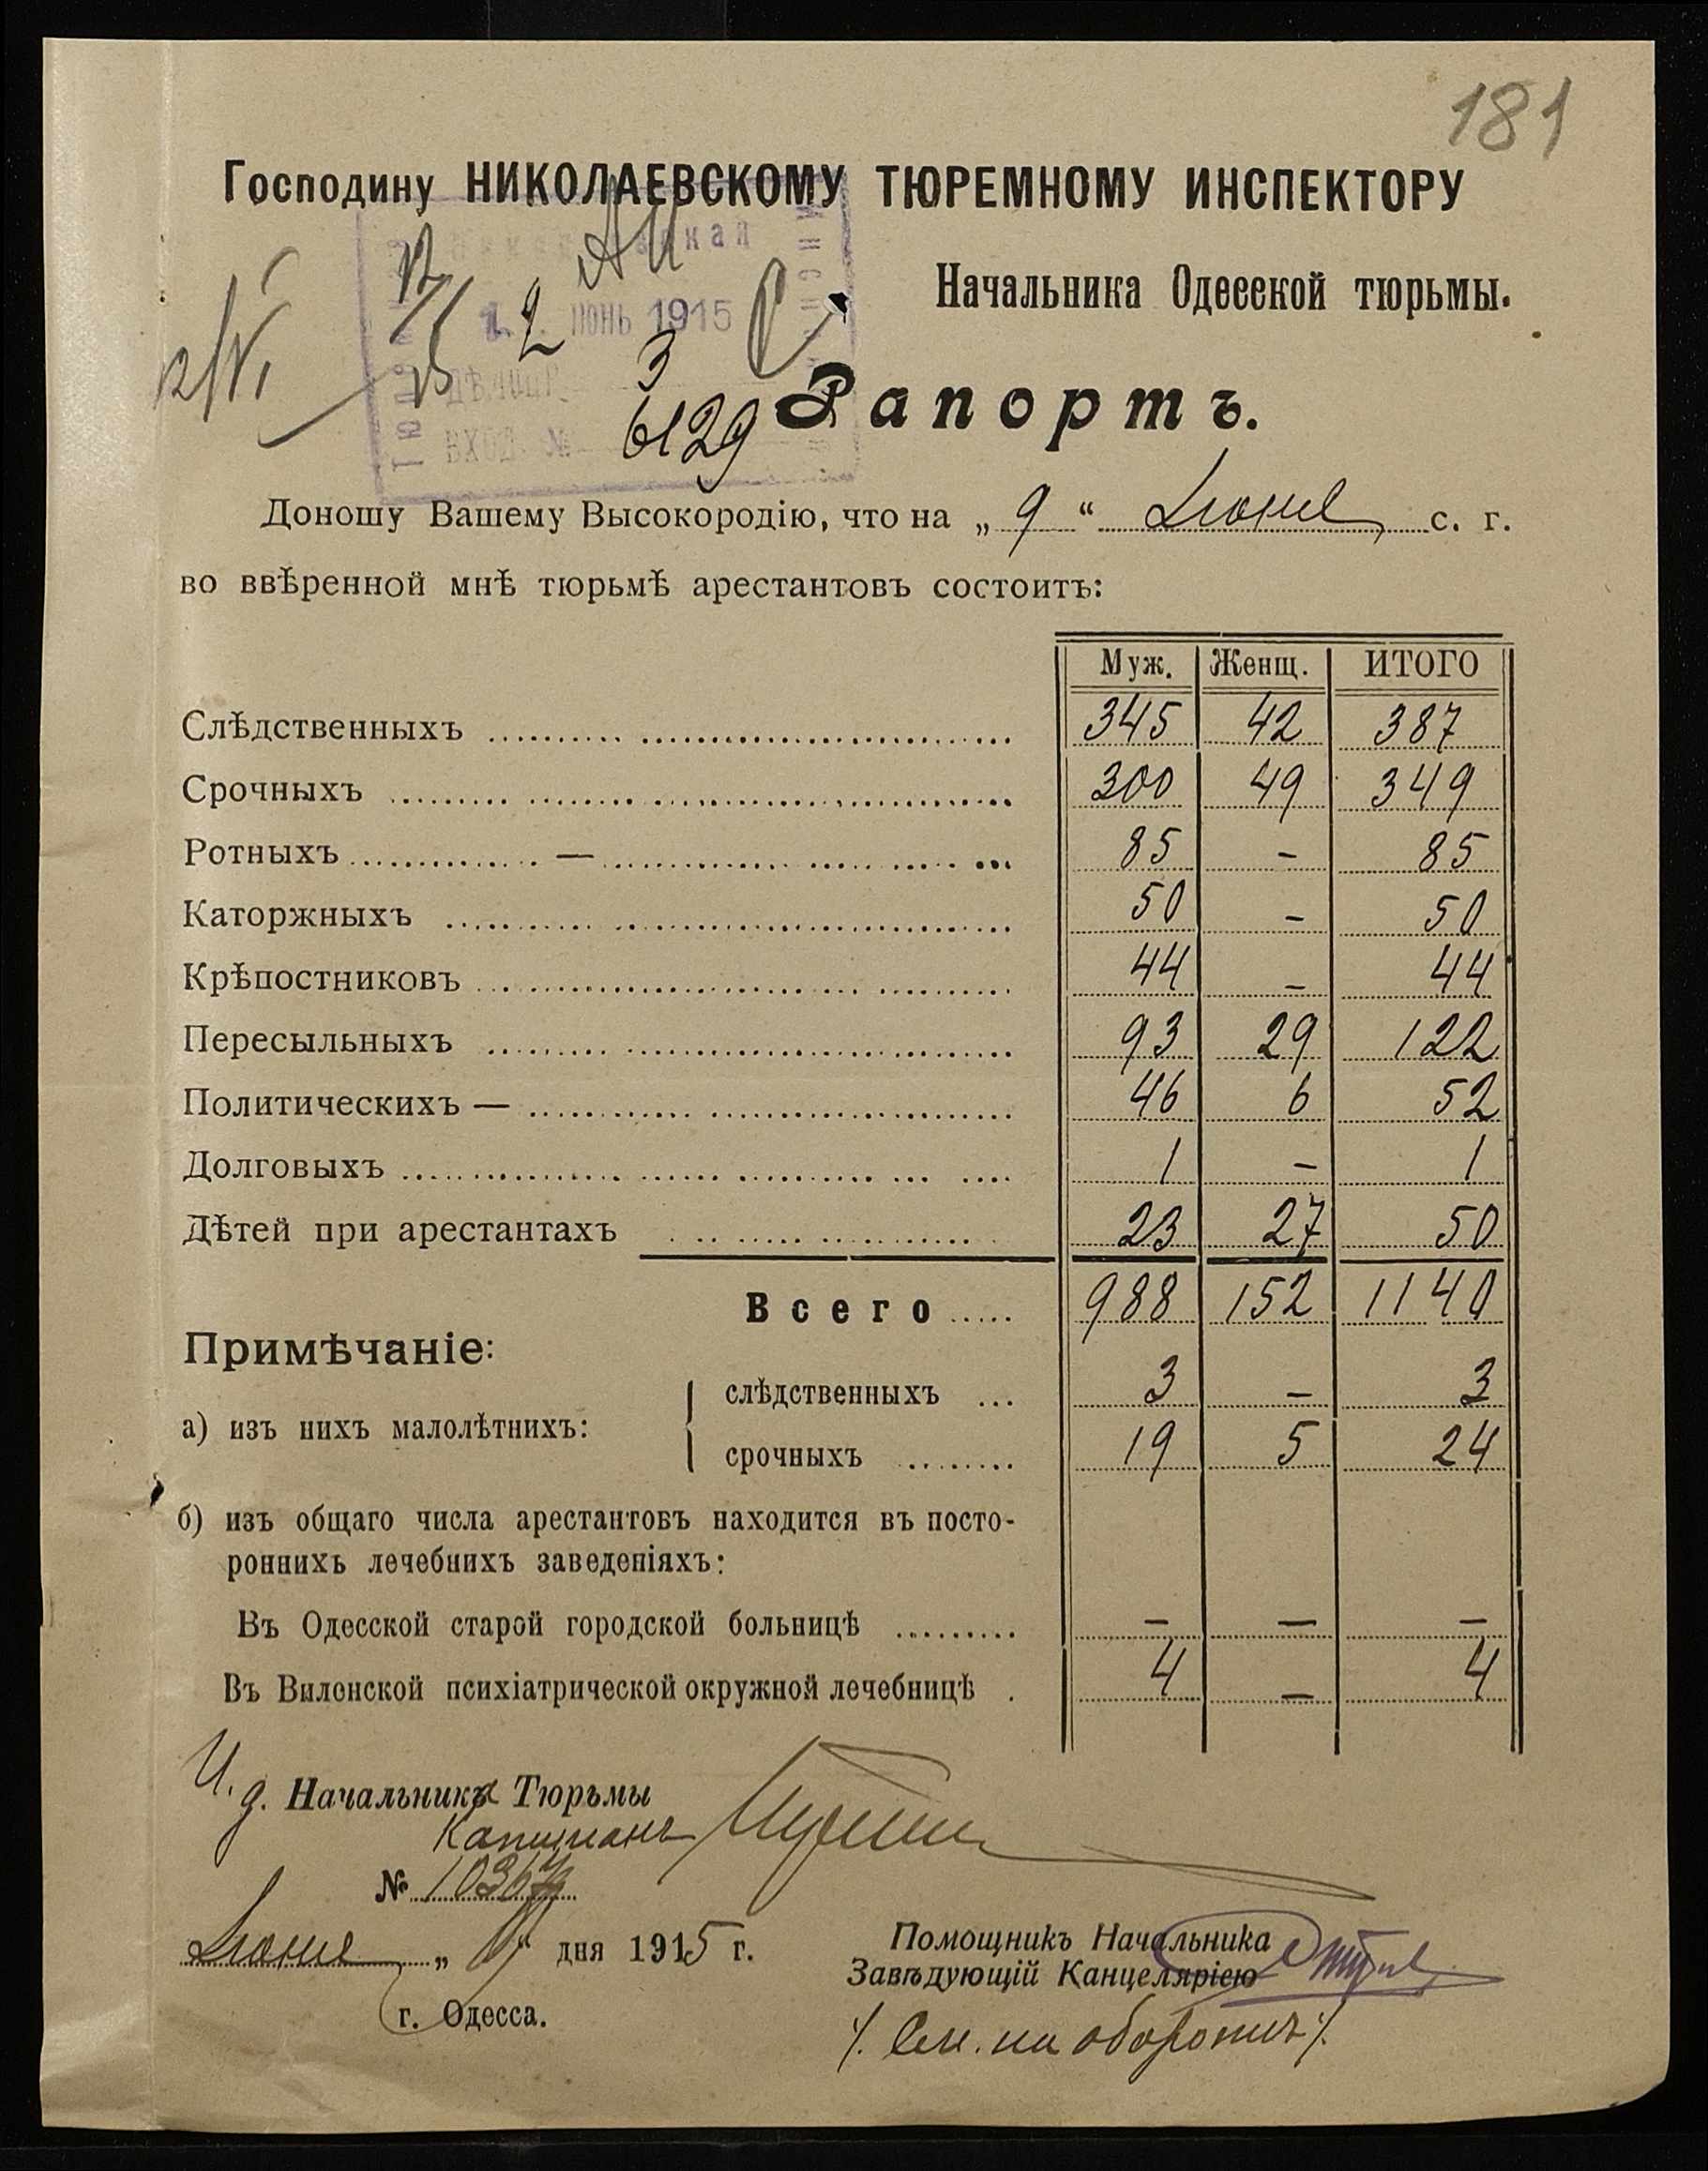 181
Господину НИКОЛАЕВСКОМУ ТЮРЕМНОМУ ИНСПЕКТОРУ
Начальника Одесской тюрьмы.
12/VI
2
ІЮНЬ 1915
3
ВХОД. №
6129
Рапортъ.
Доношу Вашему Высокородію, что на „ 9 “ Іюня с. г.
во ввѣренной мнѣ тюрьмѣ арестантовъ состоитъ:
Муж. Женщ. ИТОГО
Слѣдственныхъ 345 42 387
Срочныхъ 300 49 349
Ротныхъ — 85 - 85
Каторжныхъ 50 - 50
Крѣпостниковъ 44 - 44
Пересыльныхъ 93 29 122
Политическихъ — 46 6 52
Долговыхъ 1 - 1
Дѣтей при арестантахъ 23 27 50
Всего 988 152 1140
Примѣчаніе:
а) изъ нихъ малолѣтнихъ:
слѣдственныхъ 3 - 3
срочныхъ 19 5 24
б) изъ общаго числа арестантовъ находится въ посто-
роннихъ лечебнихъ заведеніяхъ:
Въ Одесской старой городской больницѣ - - -
Въ Виленской психіатрической окружной лечебницѣ . 4 - 4
И. д. Начальника Тюрьмы
Капитанъ
№
Іюня „ “ дня 1915 г.
г. Одесса.
Помощникъ Начальника
Завѣдующій Канцеляріею
/. См. на оборотѣ /.